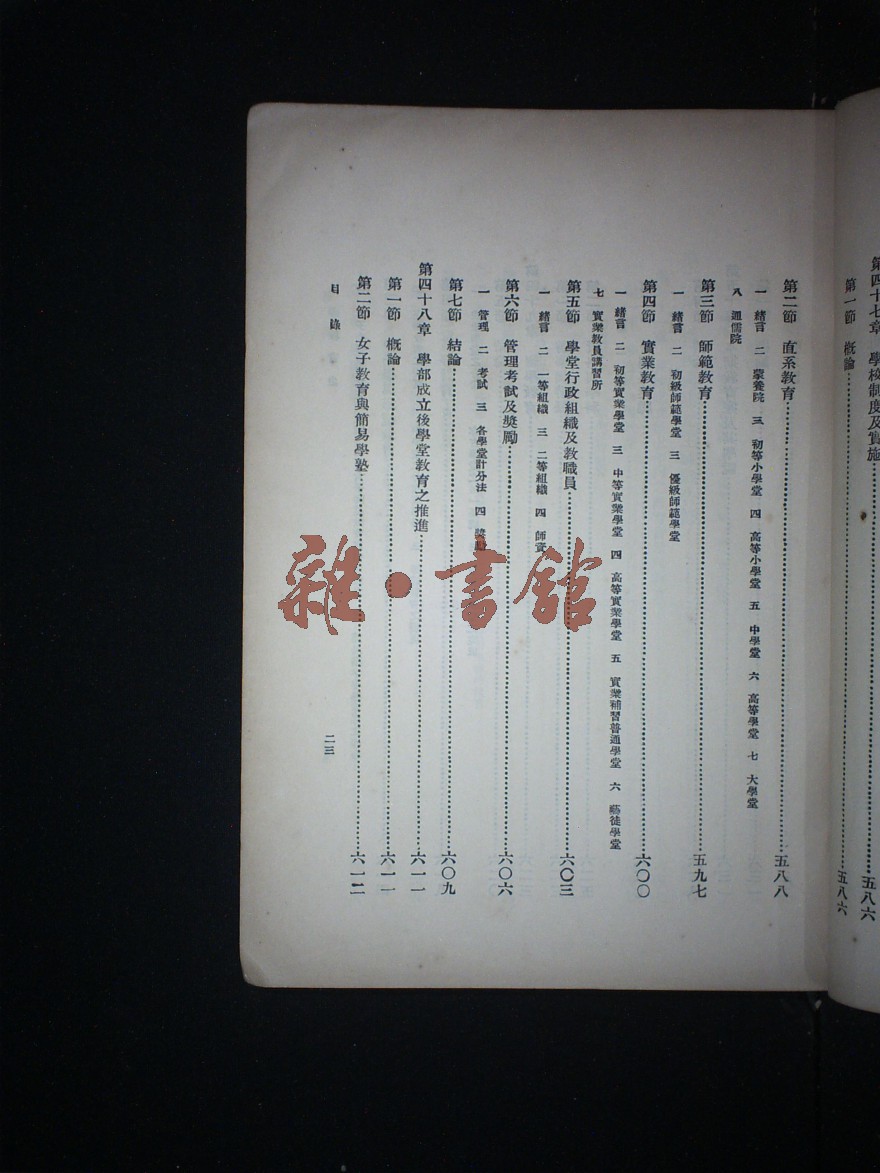 第四十七章 學校制度及實施……五八六
第一節 概論……五八六
第二節 直系教育……五八八
一 緒言 二 蒙養院 三 初等小學堂 四 高等小學堂 五 中學堂 六 高等學堂 七 大學堂
八 通儒院
第三節 師範教育……五九七
一 緒言 二 初級師範學堂 三 優級師範學堂
第四節 實業教育……六〇〇
一 緒言 二 初等實業學堂 三 中等實業學堂 四 高等實業學堂 五 實業補習普通學堂 六 藝徒學堂
七 實業教員講習所
第五節 學堂行政組織及教職員……六〇三
一 緒言 二 一等組織 三 二等組織 四 師資
第六節 管理考試及獎勵……六〇六
一 管理 二 考試 三 各學堂計分法 四 獎勵
第七節 結論……六〇九
第四十八章 學部成立後學堂教育之推進……六一一
第一節 概論……六一一
第二節 女子教育與簡易學塾……六一二
目錄
二三
雜·書館